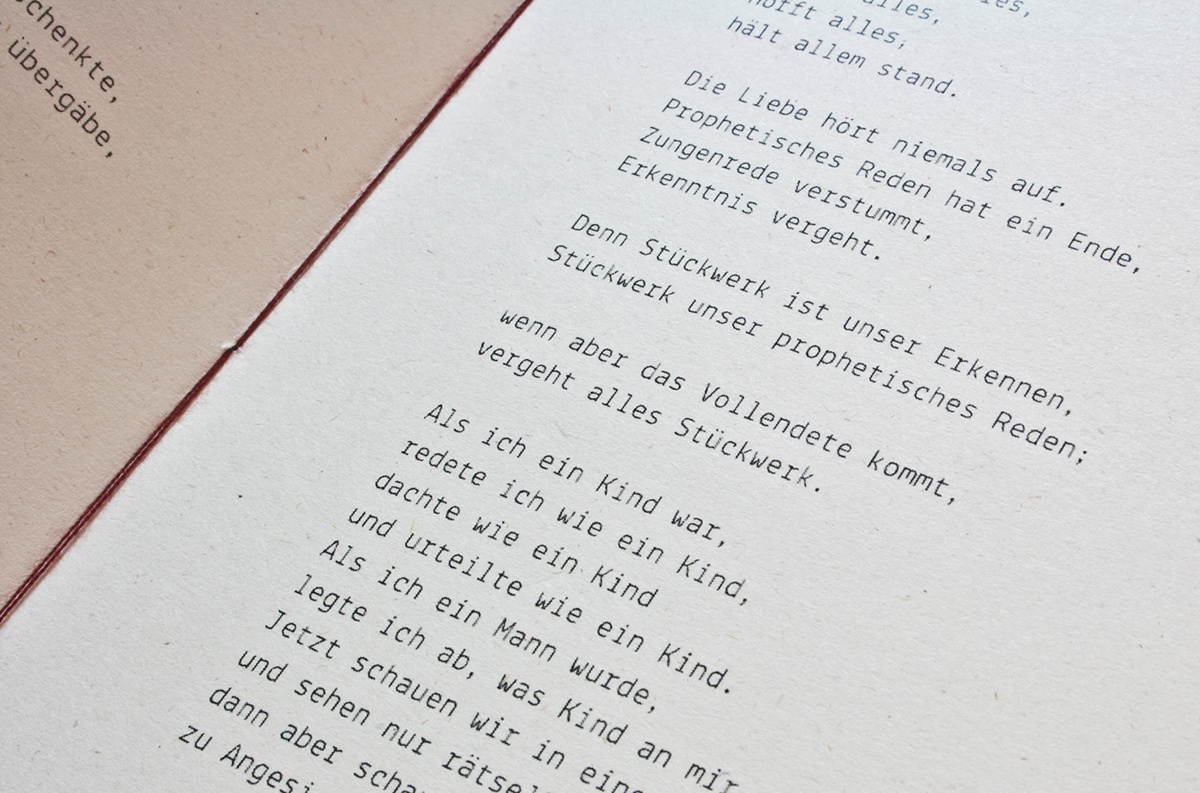 schenkte,
übergäbe,
alles,
hofft alles;
hält allem stand.
Die Liebe hört niemals auf.
Prophetisches Reden hat ein Ende,
Zungenrede verstummt,
Erkenntnis vergeht.
Denn Stückwerk ist unser Erkennen,
Stückwerk unser prophetisches Reden;
wenn aber das Vollendete kommt,
vergeht alles Stückwerk.
Als ich ein Kind war,
redete ich wie ein Kind,
dachte wie ein Kind
und urteilte wie ein Kind.
Als ich ein Mann wurde,
legte ich ab, was Kind an mir
Jetzt schauen wir in eine
und sehen nur rätsel
dann aber scha
zu Angesi